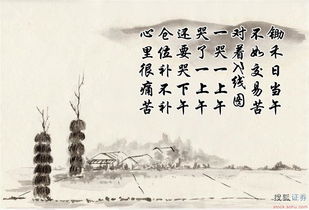 锄禾日当午
不如交易苦
对着K线图
一哭一上午
哭了一上午
还要哭下午
仓位补不补
心里很痛苦
搜狐证券
stock.sohu.com